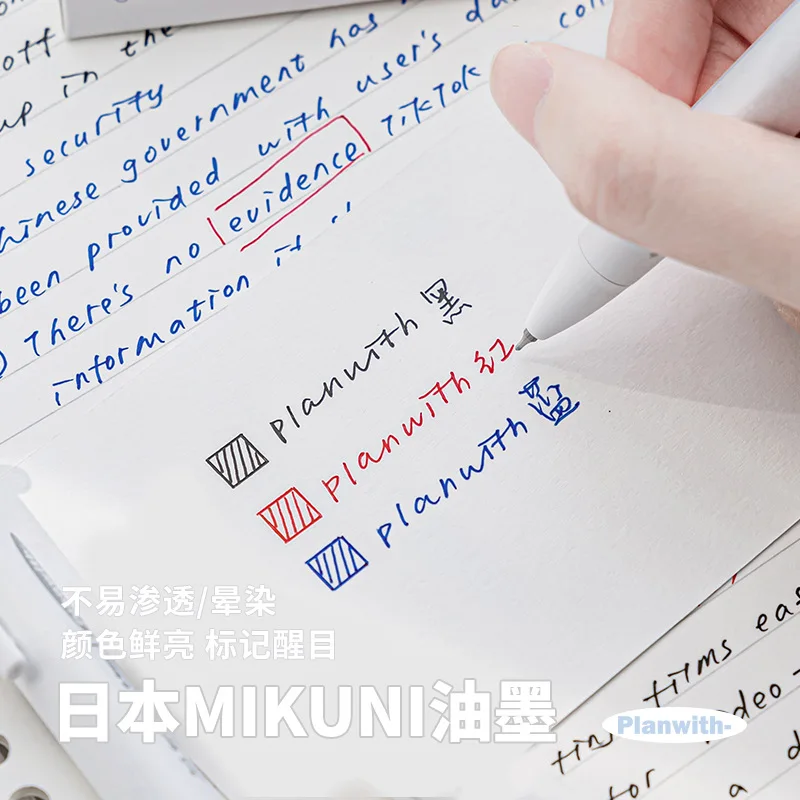 off
up in the
security
hinese government has
been provided with user's da
There's no evidence TikTok con
information it
planwith 黑
planwith 红
planwith 蓝
不易渗透/晕染
颜色鲜亮 标记醒目
日本MIKUNI油墨
Planwith-
films eas
video
for a d